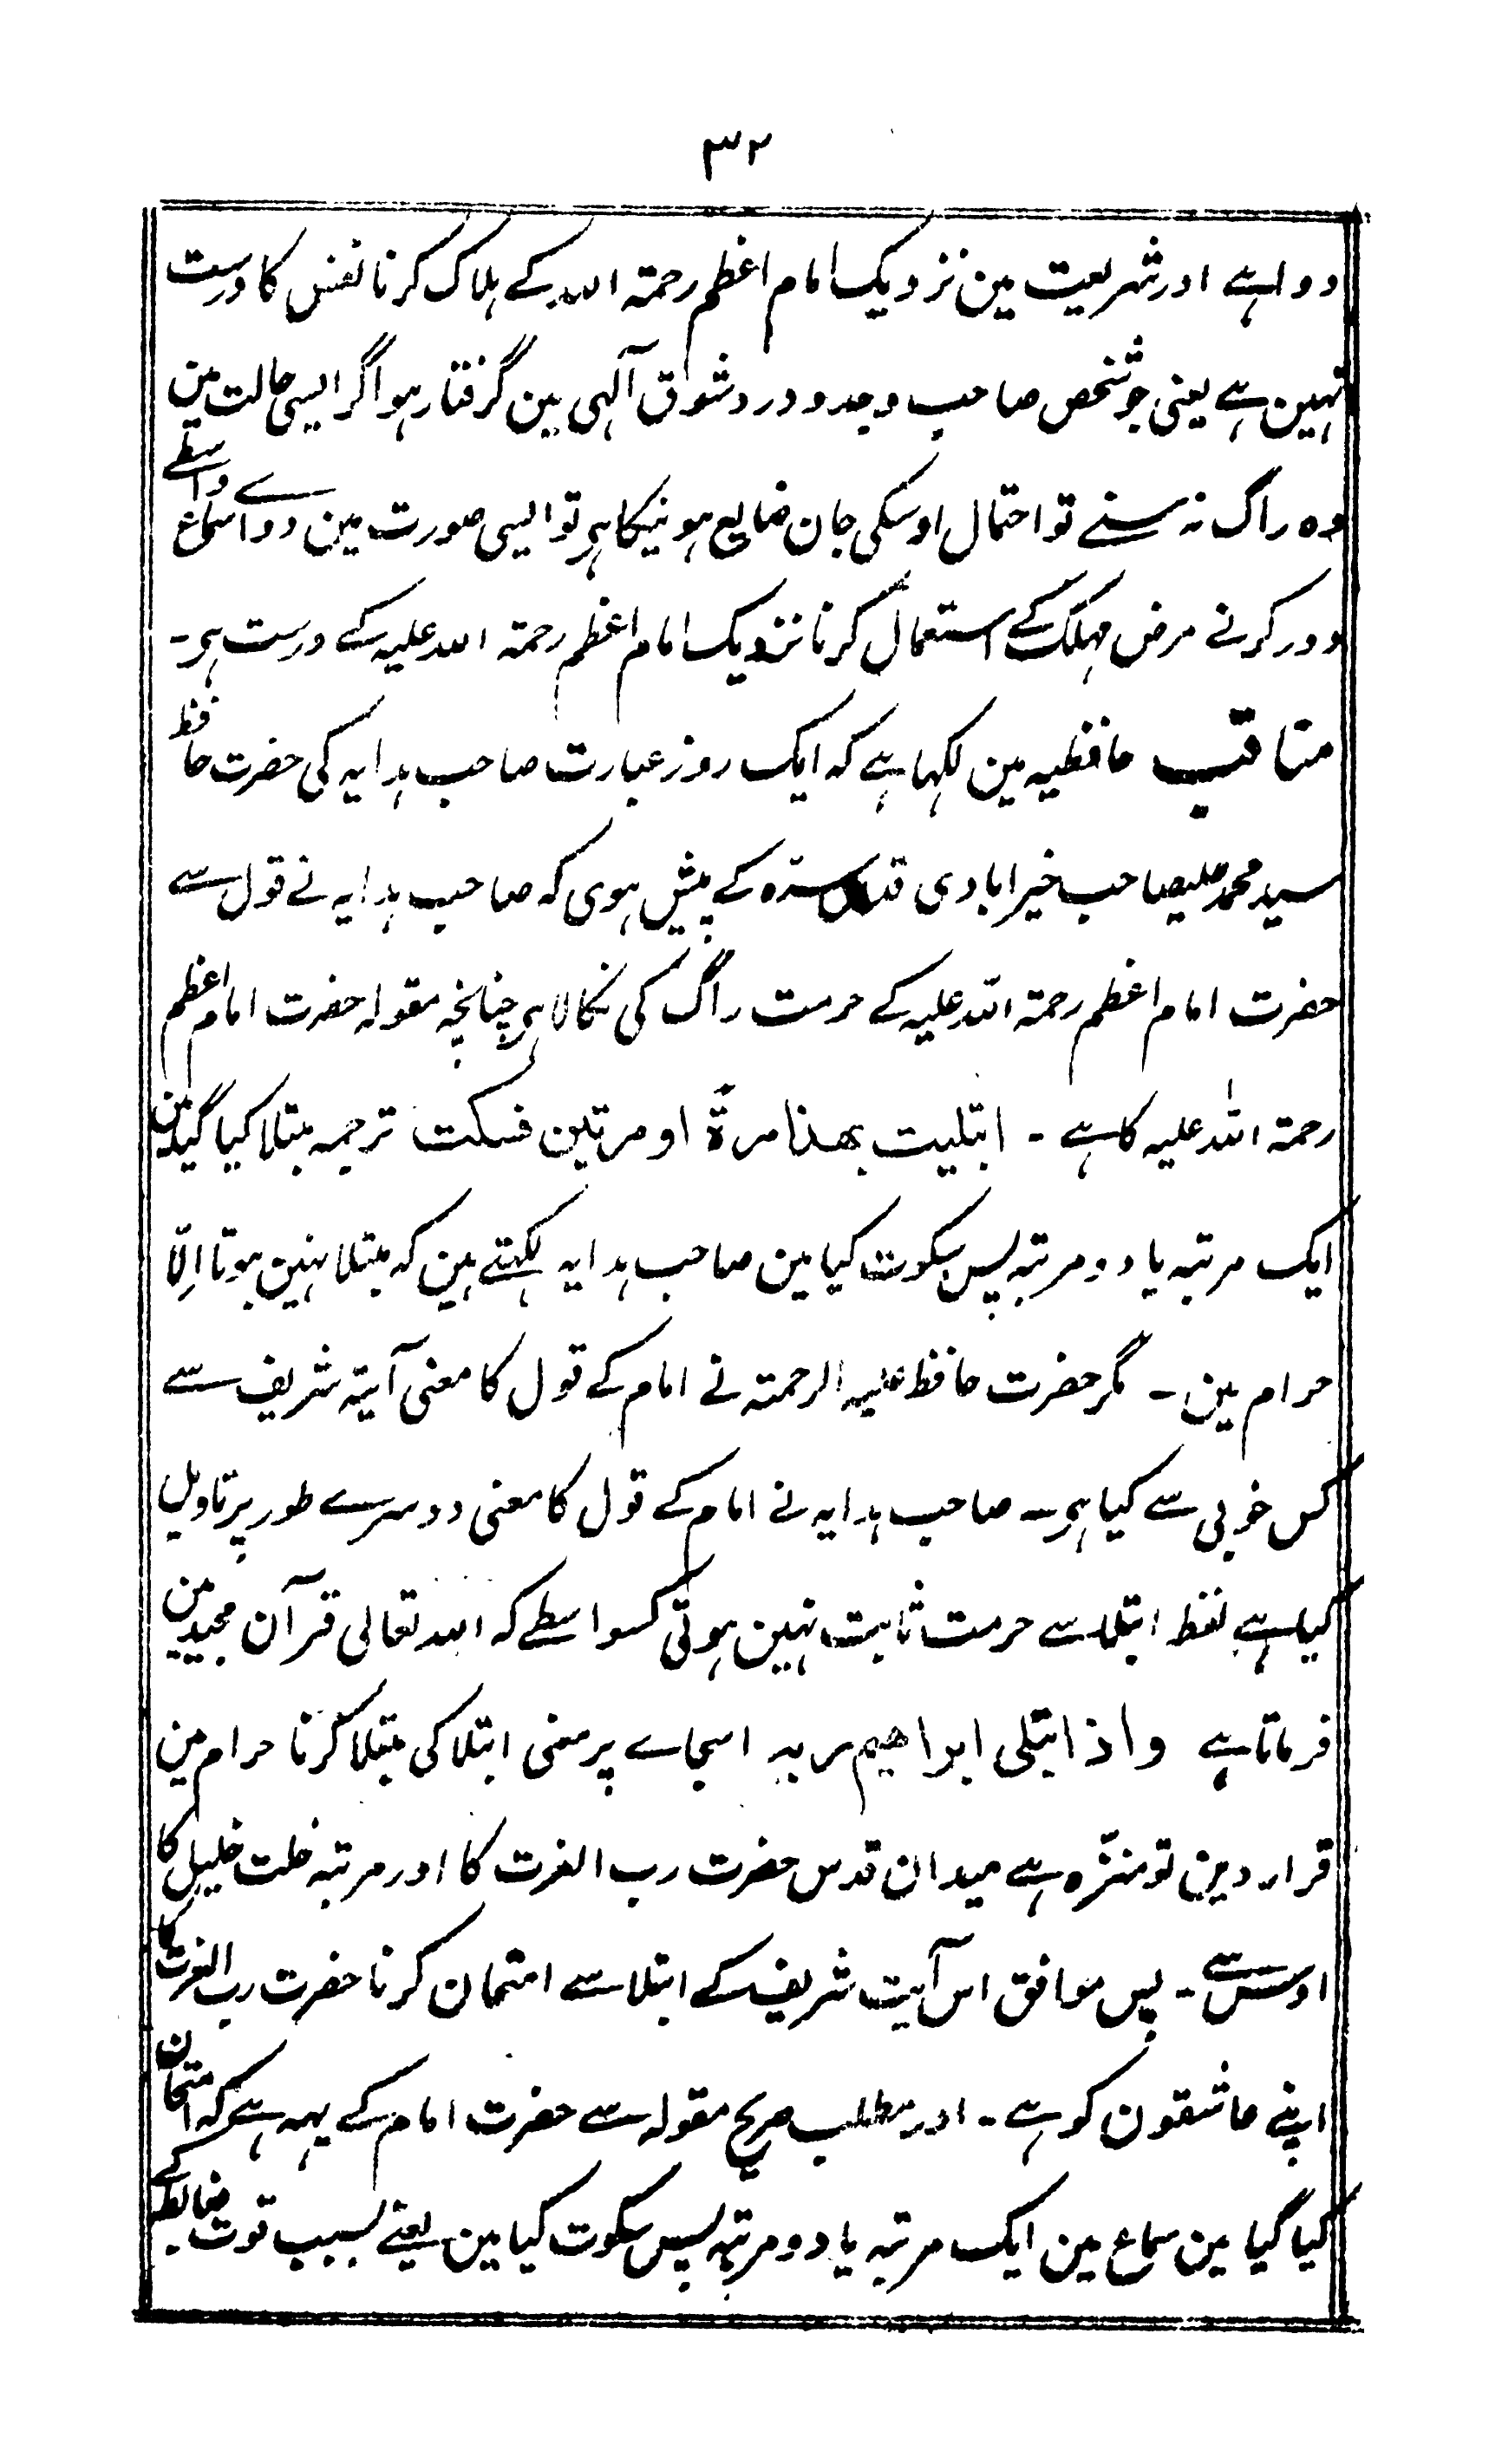 ۳۲
دوا ہے اور شریعت مین نزدیک امام اعظم رحمۃ اللہ کے ہلاک کرنا نفس کا درست
نہین ہے یعنی جو شخص صاحب وجد و درد شوق آلہی مین گرفتار ہو اگر ایسی حالت مین
وہ راگ نہ سنے تو احتمال اوسکی جان ضایع ہونیکا ہی تو ایسی صورت مین دواے سماع واسطے
دور کرنے مرض مہلک کے استعمال کرنا نزدیک امام اعظم رحمۃ اللہ علیہ کے درست ہی ۔
مناقب حافظیہ مین لکھا ہے کہ ایک روز عبارت صاحب ہدایہ کی حضرت حافظ
سید محمد علیصاحب خیرابادی قدس سترہ کے پیش ہوی کہ صاحب ہدایہ نے قول سے
حضرت امام اعظم رحمۃ اللہ علیہ کے حرمت راگ کی نکالا ہی چنانچہ مقولہ حضرت امام اعظم
رحمۃ اللہ علیہ کا ہے ۔ ابتلیت بھذا مرۃ او مرتین فسکت ترجمہ مبتلا کیا گیا مین
ایک مرتبہ یا دو مرتبہ پس سکوت کیا مین صاحب ہدایہ لکھتے ہین کہ مبتلا نہین ہوتا اِلّا
حرام مین ۔ مگر حضرت حافظ علیہ الرحمتہ نے امام کے قول کا معنی آیتہ شریف سے
کس خوبی سے کیا ہی ۔ صاحب ہدایہ نے امام کے قول کا معنی دوسرے طور پر تاویل
کیا ہے لفظ ابتلا سے حرمت ثابت نہین ہوتی کسواسطے کہ اللہ تعالی قرآن مجید مین
فرماتا ہے واذ ابتلی ابراھیم ربہ اسجاے پر معنی ابتلا کی مبتلا کرنا حرام مین
قرار دین تو منزّہ ہے میدان قدس حضرت رب العزت کا اور مرتبہ خلت خلیل کا
اوس سے ۔ پس موافق اس آیت شریف کے ابتلا سے امتحان کرنا حضرت رب العزت کا
اپنے عاشقون کو ہے ۔ اور مطلب صریح مقولہ سے حضرت امام کے یہہ ہے کہ امتحان
کیا گیا مین سماع مین ایک مرتبہ یا دو مرتبہ پس سکوت کیا مین یعنے بسبب قوت ضابطہ کے